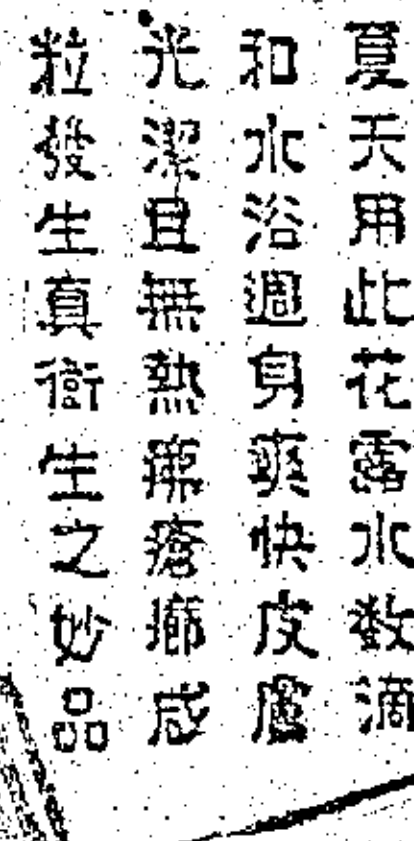 夏天用此花露水数滴
和水浴週身爽快皮膚
光潔且無熱痱瘡癤咸
粒發生真衛生之妙品